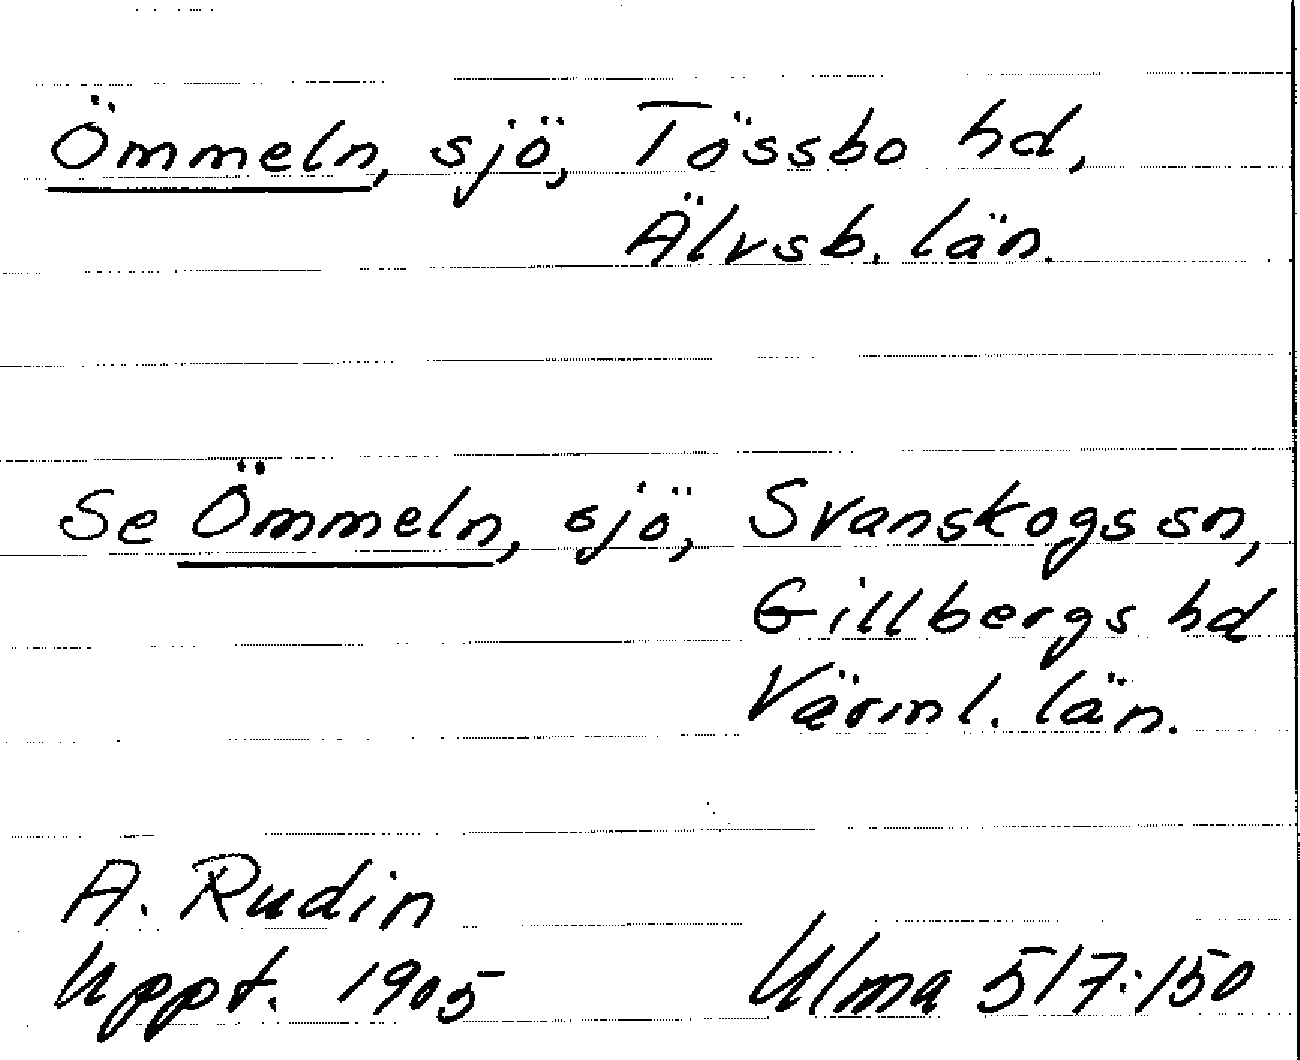 Ömmeln, sjö, Tössbo hd,
Älvsb. län.
Se Ömmeln, sjö, Svanskogs sn,
Gillbergs hd
Värml. län.
A. Rudin
Uppt. 1905 Ulma 517:150